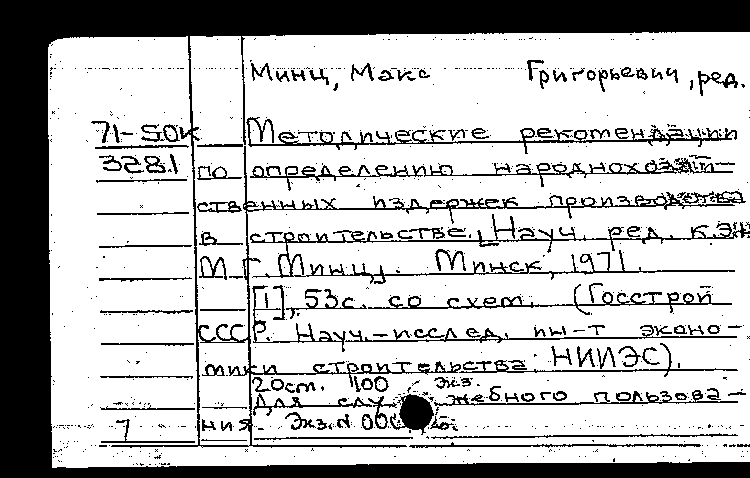 Минц, Макс Григорьевич, ред.
71-5ОК Методические рекомендации
3281 по определению народнохозяй-
ственных издержек производства
в строительстве. [Науч. ред. к.эн
М.Г. Минц]. Минск, 1971.
[1], 53с. со схем. (Госстрой
СССР. Науч.-исслед. ин-т эконо-
мики строительства НИИЭС).
20см. 100 экз.
Для служебного пользова-
7 ния. Экз.N